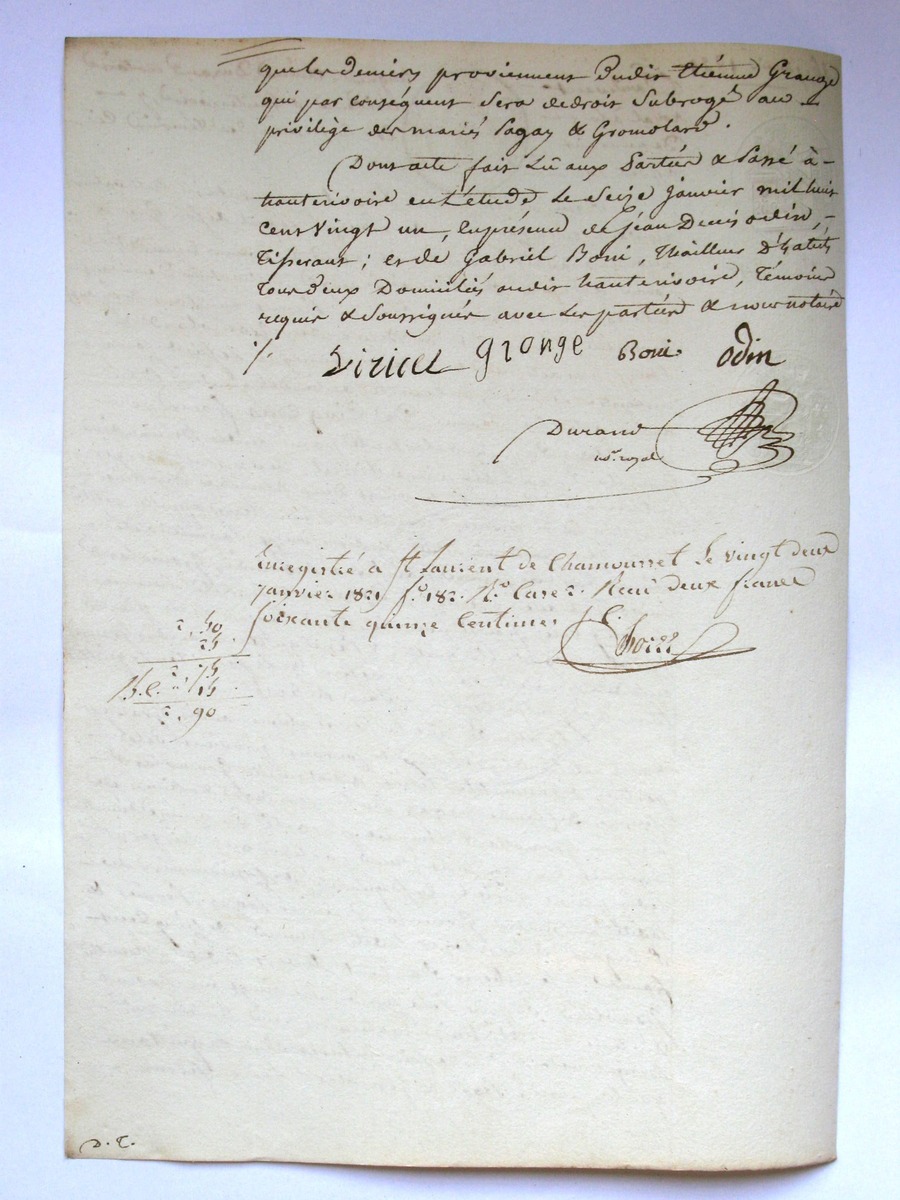 que les deniers proviennent Dudit Etienne Grange
qui par conséquent sera de droit subrogé au
privilège des mariés Pagay & Gromolard.
Dont acte fait Lû aux Parties & Passé à
hauterivoire en L'étude Le Seize janvier mil huit
cent vingt un, En présence de Jean Denis odin,
Tisserant; et de Gabriel Boni, Thailleur D'habits
Tous deux Domiciliés audit hauterivoire, Témoins
requis & Soussignés avec Les parties & nous notaire
Viricel grange Boni odin
Durand
no.re royal
Enregistré à St Laurent de Chamousset Le vingt deux
janvier 1821 f.o 182. R.o Case 2. Recu deux francs
Soixante quinze Centimes
2, 50
25
2, 75
15
2, 90
D. T.